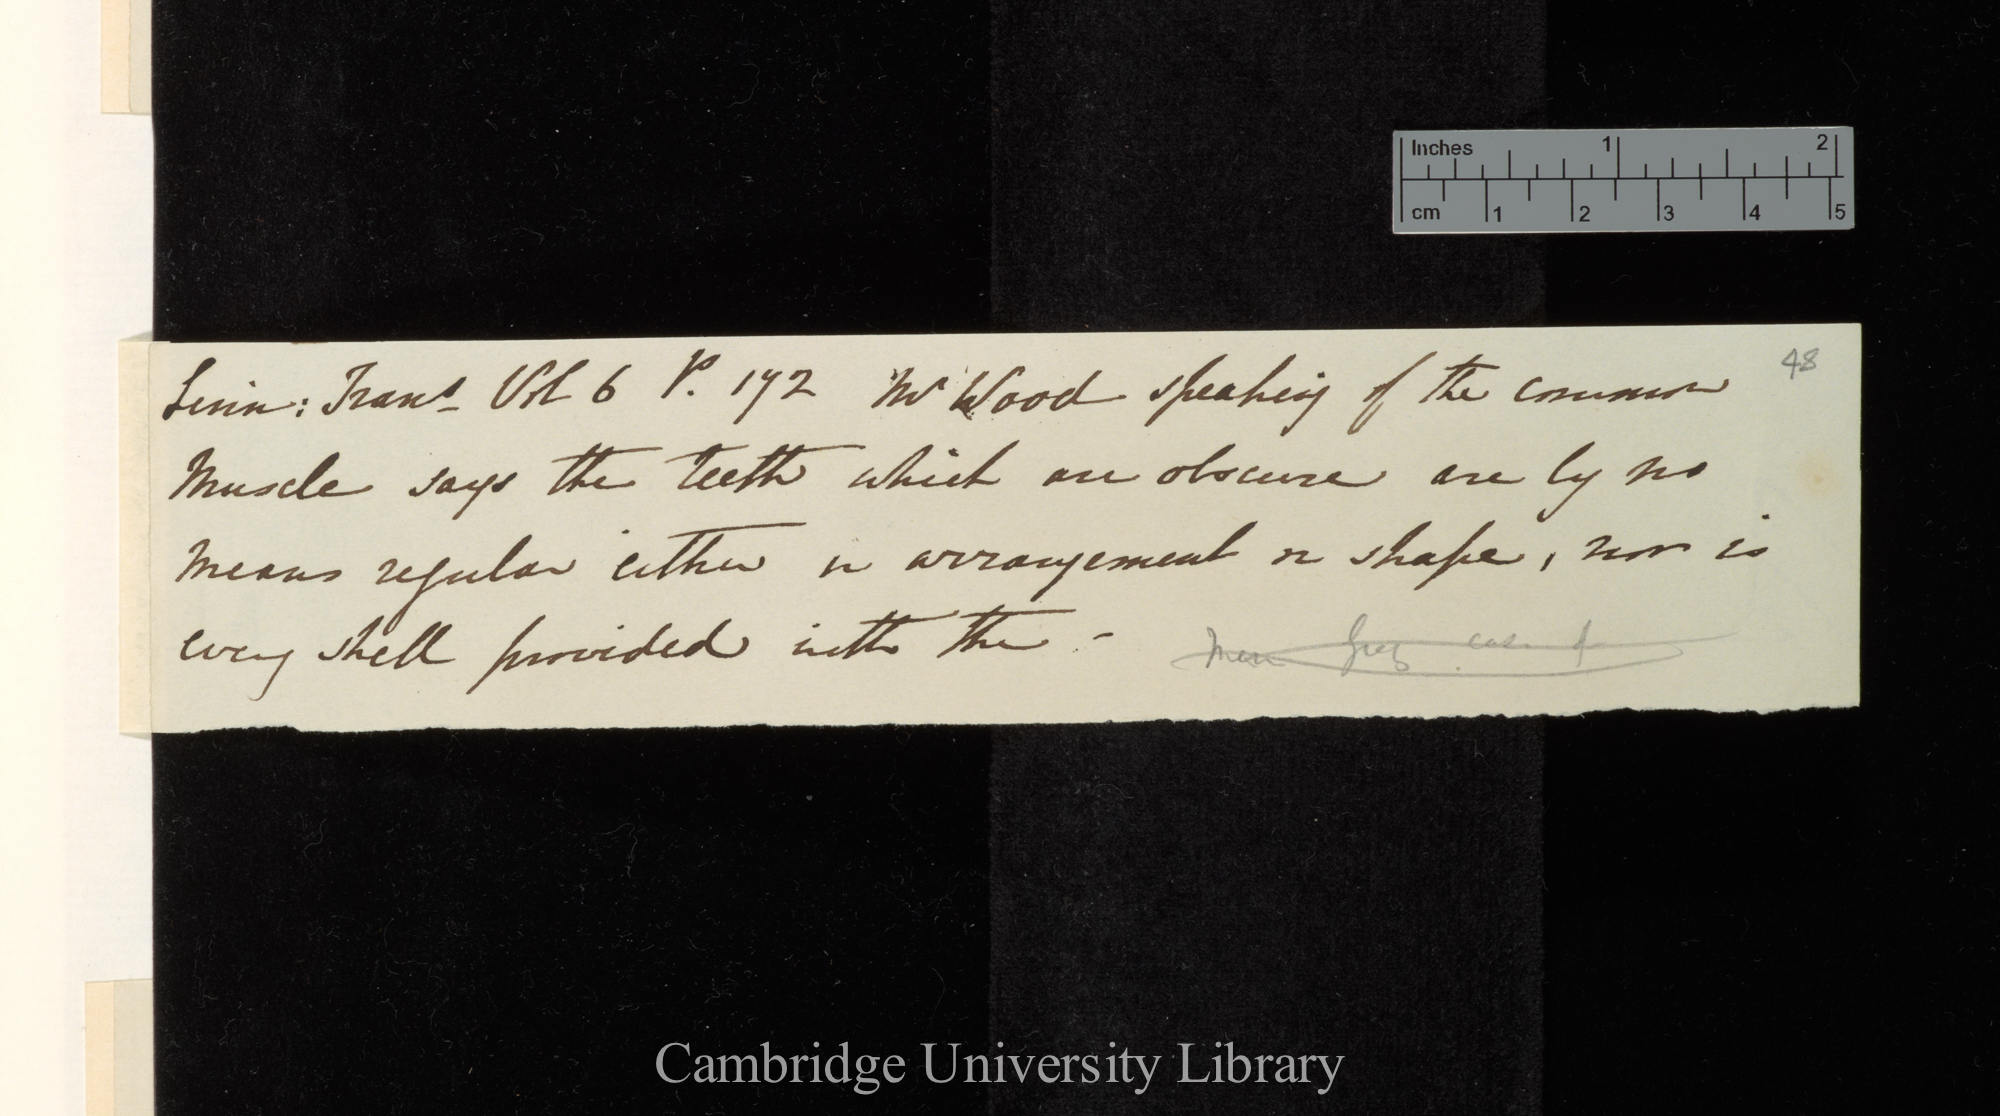 48
Linn: Trans. Vol 6 P. 172 Mr Wood speaking of the common
Muscle says the teeth which are obscure are by no
means regular either in arrangement or shape, nor is
every shell provided with the –
Inches 1 2
cm 1 2 3 4 5
Cambridge University Library